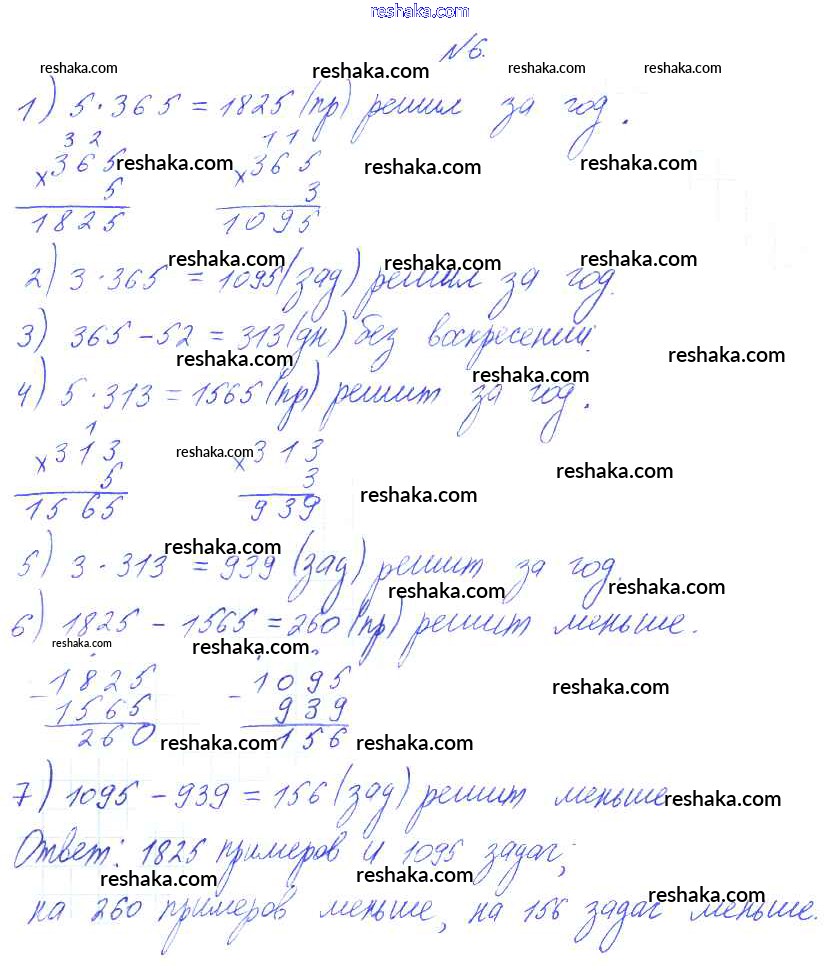 reshaka.com
№6.
reshaka.com reshaka.com reshaka.com reshaka.com
1) 5·365 = 1825 (пр) решил за год.
3 2 1 1
×365 reshaka.com ×365 reshaka.com reshaka.com
5 3
1825 1095
reshaka.com reshaka.com reshaka.com
2) 3·365 = 1095 (зад) решил за год.
3) 365 - 52 = 313 (дн) без воскресений.
reshaka.com reshaka.com reshaka.com
4) 5·313 = 1565 (пр) решит за год.
1
×313 reshaka.com ×313 reshaka.com
5 3 reshaka.com
1565 939
reshaka.com
5) 3·313 = 939 (зад) решит за год.
reshaka.com reshaka.com
6) 1825 - 1565 = 260 (пр) решит меньше.
reshaka.com reshaka.com
-1825 -1095 reshaka.com
1565 939
260 reshaka.com 156 reshaka.com
7) 1095 - 939 = 156 (зад) решит меньше reshaka.com
Ответ: 1825 примеров и 1095 задач;
reshaka.com reshaka.com reshaka.com
на 260 примеров меньше, на 156 задач меньше.